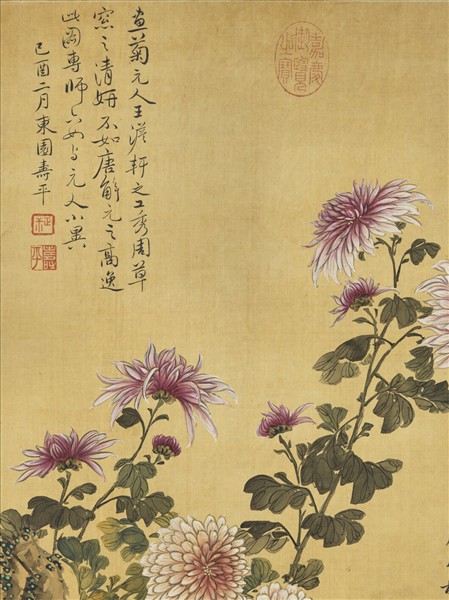 畫菊元人王澹軒之工秀周草
窓之清妍不如唐解元之高逸
此圖專師六如与元人小異
己酉二月東園壽平
嘉慶御覽之寶
正叔
壽平